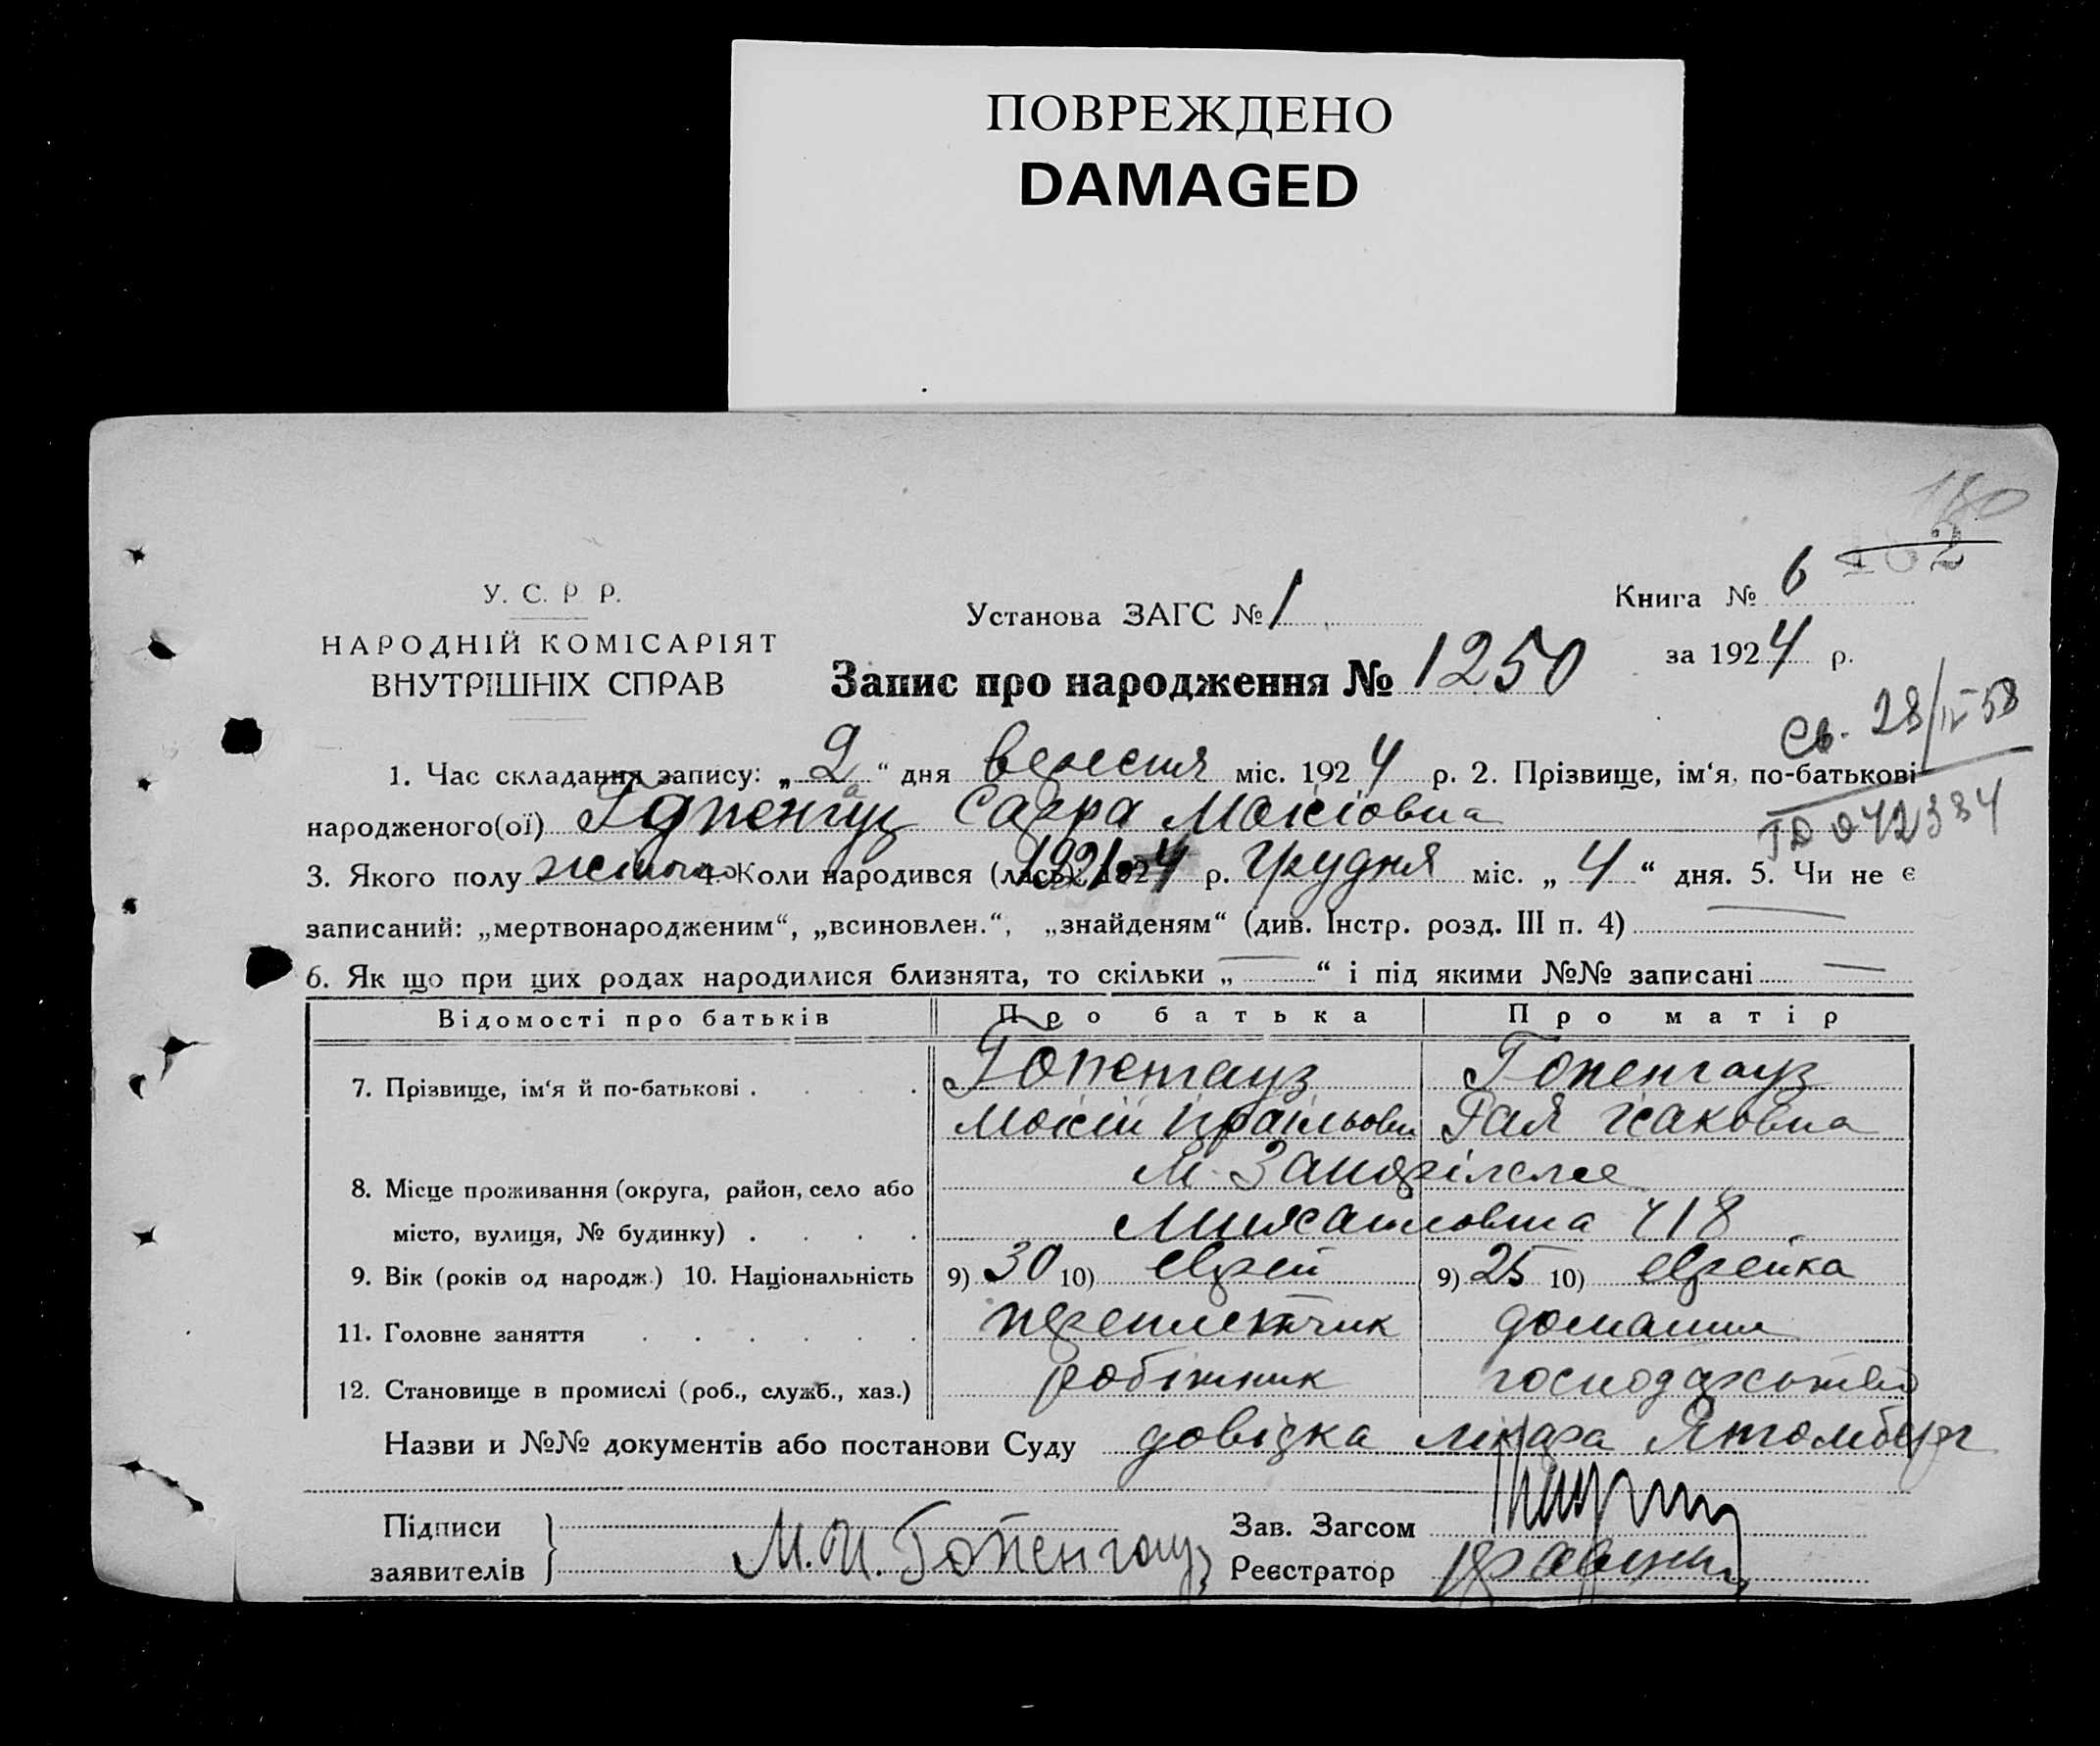 ПОВРЕЖДЕНО
DAMAGED
У. С. Р. Р.
НАРОДНІЙ КОМІСАРІЯТ
ВНУТРІШНІХ СПРАВ
Установа ЗАГС № 1
Книга № 6
за 1924 р.
Запис про народження № 1250
Св. 28/IV-58
ГО 042334
1. Час складання запису: „ 2 “ дня вересня міс. 1924 р. 2. Прізвище, ім‘я, по-батькові
народженого(ої) Гопенгауз Сарра Мойсіовна
3. Якого полу жіночо 4. Коли народився (лась) 1921 р. Грудня міс. „ 4 “ дня. 5. Чи не є
записаний: „мертвонародженим“, „всиновлен.“, „знайденям“ (див. Інстр. розд. III п. 4)
6. Як що при цих родах народилися близнята, то скільки „ — “ і під якими №№ записані —
Відомості про батьків Про батька Про матір
7. Прізвище, ім‘я й по-батькові . Гопенгауз Гопенгауз
Мойсій Ізраїльови Рая Ісаковна
8. Місце проживання (округа, район, село або
місто, вулиця, № будинку) . Михайловша ч 18
9. Вік (років од народж.) 10. Національність 9) 30 10) єврей 9) 25 10) єврейка
11. Головне заняття переплетчик домашнє
12. Становище в промислі (роб., служб., хаз.) робітник господарство
Назви и №№ документів або постанови Суду довідка лікаря
Підписи
заявителів М. И. Гопенгауз
Зав. Загсом
Реєстратор